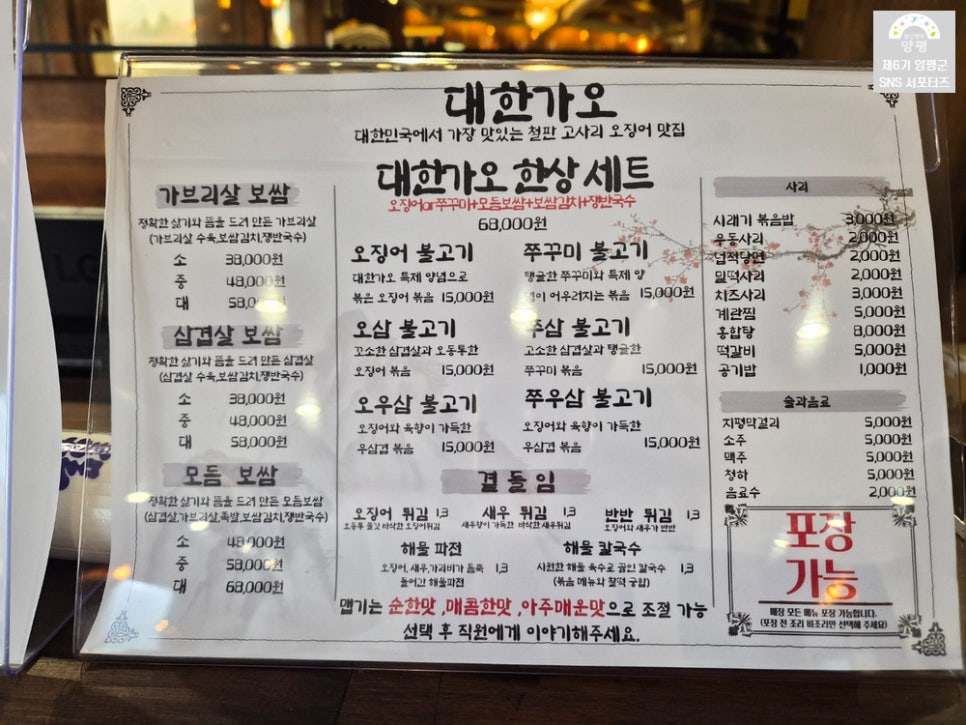 양평
제6기 양평군
SNS 서포터즈
대한가오
대한민국에서 가장 맛있는 철판 고사리 오징어 맛집
대한가오 한상 세트
오징어or쭈꾸미+모듬보쌈+보쌈김치+쟁반국수
68,000원
가브리살 보쌈
정확한 삶기와 뜸을 드려 만든 가브리살
(가브리살 수육,보쌈김치,쟁반국수)
소 38,000원
중 48,000원
대 58,000원
삼겹살 보쌈
정확한 삶기와 뜸을 드려 만든 삼겹살
(삼겹살 수육,보쌈김치,쟁반국수)
소 38,000원
중 48,000원
대 58,000원
모듬 보쌈
정확한 삶기와 뜸을 드려 만든 모듬보쌈
(삼겹살,가브리살,족발,보쌈김치,쟁반국수)
소 48,000원
중 58,000원
대 68,000원
오징어 불고기
대한가오 특제 양념으로
볶은 오징어 볶음 15,000원
쭈꾸미 불고기
탱글한 쭈꾸미와 특제 양
념이 어우러지는 볶음 15,000원
오삼 불고기
꼬소한 삼겹살과 오동통한
오징어 볶음 15,000원
쭈삼 불고기
고소한 삼겹살과 탱글한
쭈꾸미 볶음 15,000원
오우삼 불고기
오징어와 육향이 가득한
우삼겹 볶음 15,000원
쭈우삼 불고기
오징어와 육향이 가득한
우삼겹 볶음 15,000원
곁들임
오징어 튀김 1,3
오동통 쫄깃 바삭한 오징어튀김
새우 튀김 1,3
새우향이 가득한 바삭한 새우튀김
반반 튀김 1,3
오징어와 새우가 반반
해물 파전
오징어, 새우,가리비가 듬뿍 1,3
들어간 해물파전
해물 칼국수
시원한 해물 육수로 끓인 칼국수 1,3
(볶음 메뉴와 찰떡 궁합)
맵기는 순한맛 ,매콤한맛 ,아주매운맛으로 조절 가능
선택 후 직원에게 이야기해주세요.
사리
시래기 볶음밥 3,000원
우동사리 2,000원
넙적당면 2,000원
밀떡사리 2,000원
치즈사리 3,000원
계란찜 5,000원
홍합탕 8,000원
떡갈비 5,000원
공기밥 1,000원
술과음료
지평막걸리 5,000원
소주 5,000원
맥주 5,000원
청하 5,000원
음료수 2,000원
포장
가능
매장 모든 메뉴 포장 가능합니다.
(포장 전 조리 비조리만 선택해 주세요)